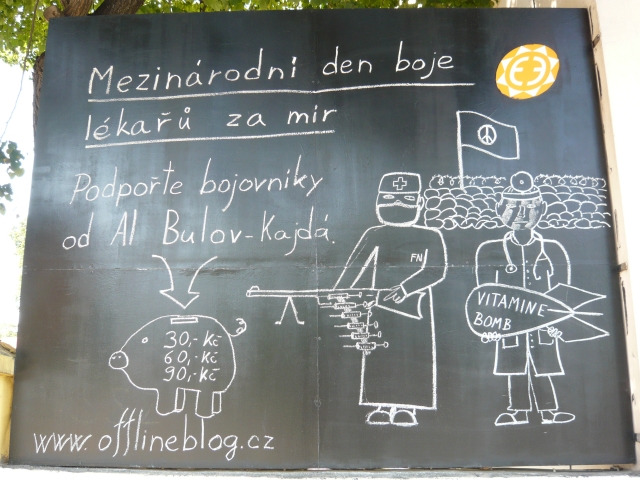 Mezinárodní den boje
lékařů za mír
Podpořte bojovníky
od Al Bulov-Kajdá.
30,-Kč
60,-Kč
90,-Kč
www.offlineblog.cz
FN
VITAMINE
BOMB